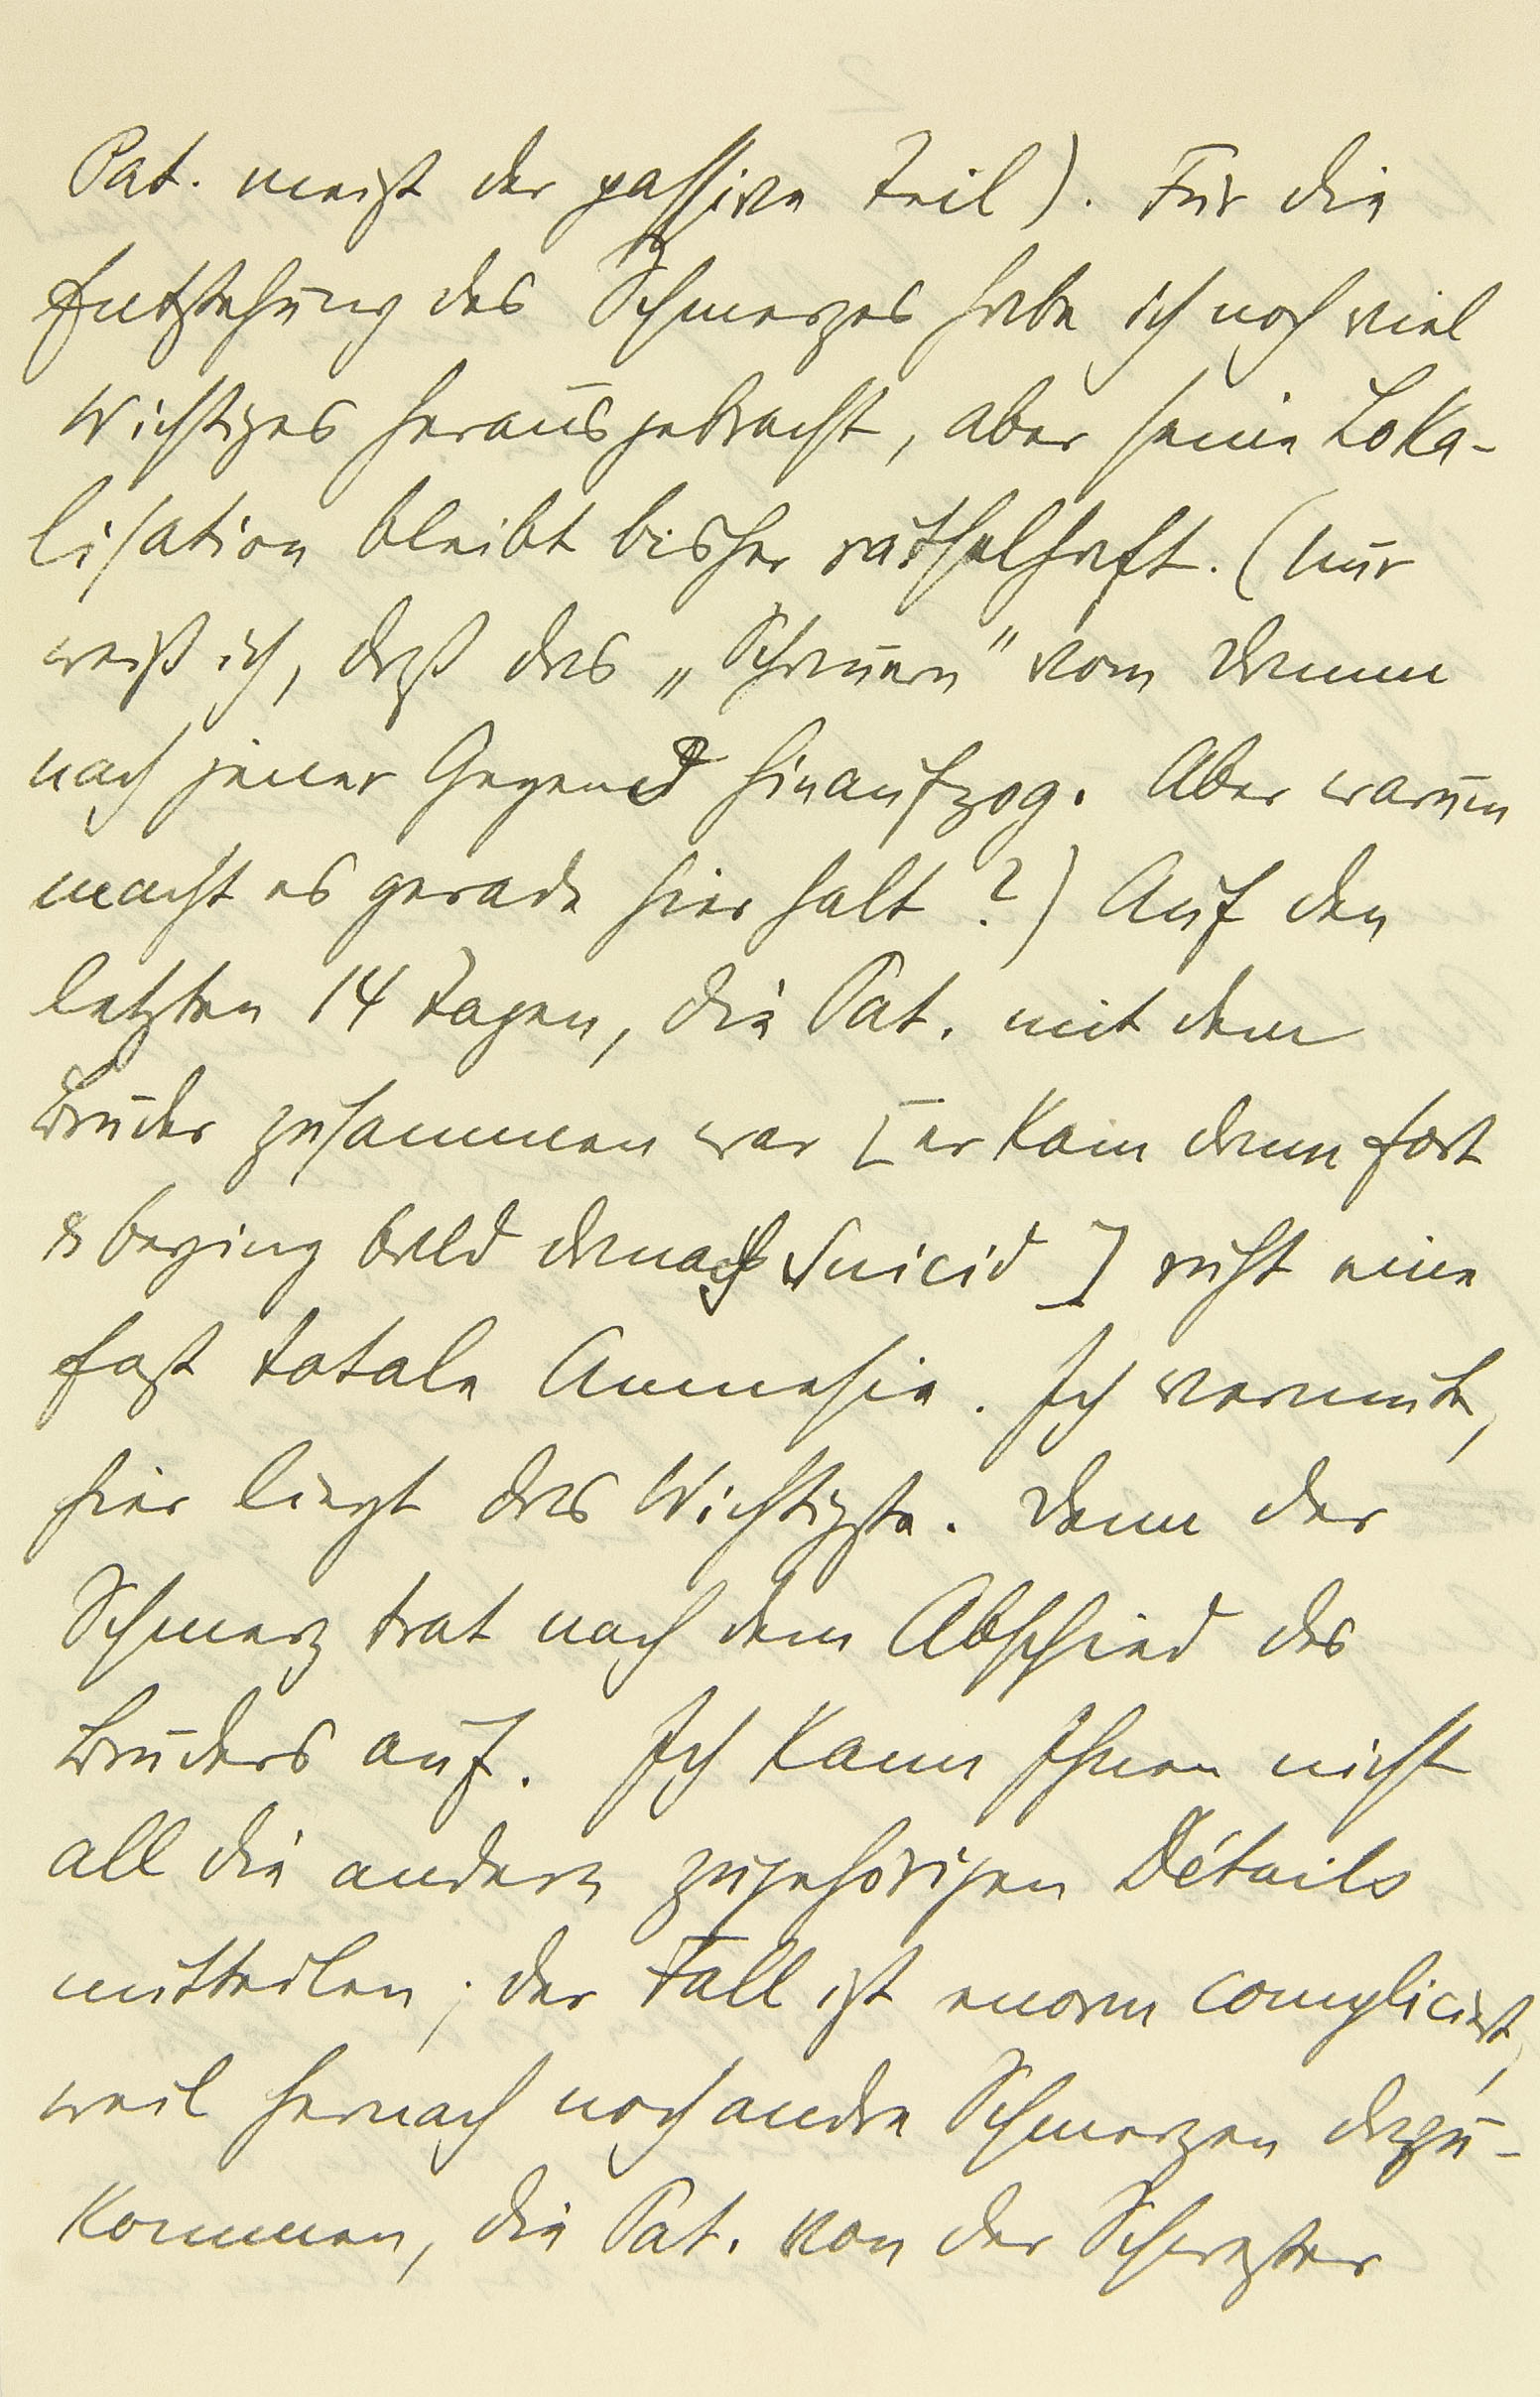 Pat. meist der passive Teil). Für die
Entstehung des Schmerzes habe ich noch viel
Wichtiges herausgebracht, aber seine Loka-
lisation bleibt bisher räthselhaft. (Nur
weiß ich, daß das „Schauern" vom Damm
nach jener Gegend hinaufzog. Aber warum
macht es gerade hier halt?) Auf den
letzten 14 Tagen, die Pat. mit dem
Bruder zusammen war [er kam dann fort
& beging bald danach Suicid] ruht eine
fast totale Amnesie. Ich vermute,
hier liegt das Wichtigste. Denn der
Schmerz trat nach dem Abschied des
Bruders auf. Ich kann Ihnen nicht
all die andern zugehörigen Détails
mitteilen; der Fall ist enorm compliciert,
weil hernach noch andre Schmerzen dazu-
kommen, die Pat. von der Schwester